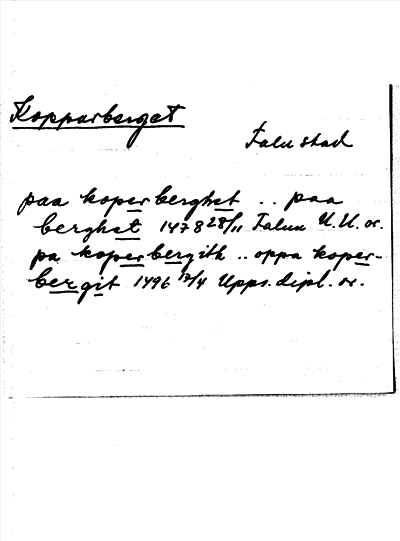 Kopparberget
Falu stad
paa koperberghet .. paa
berghet 1478 28/11 Falun U.U. or.
pa koperbergith .. oppa koper-
bergit 1496 17/4 Upps. dipl. or.